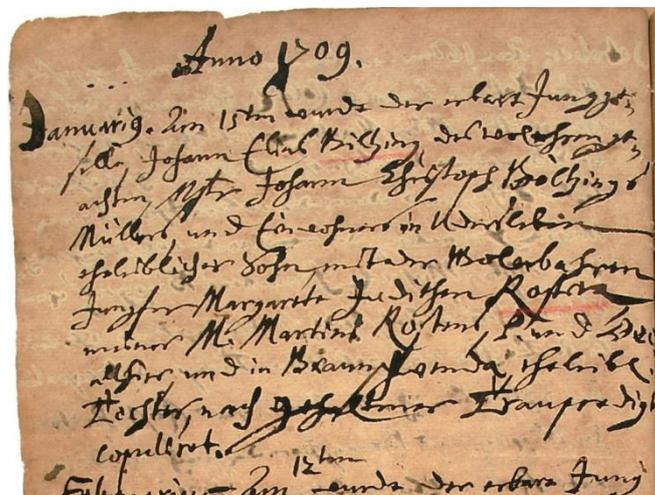 Anno 1709.
Januarig. Am 15ten wurde der erbare Jungge-
selle, Johann Elias Bilzing, des wolehrenge-
achten Mstr Johann Christoph Böltzings
Müllers, und Einwohners in Udersleben
eheleiblicher Sohn, mit der Wolerbahren
Jungfer Margareta Judithen Rosten
meiner M. Martini Rostens, P. und
allhier, und in Braunschwenda, eheleibl.
Tochter, nach gehaltener Traupredigt
copuliret.
Am 12ten wurde der erbare Jung